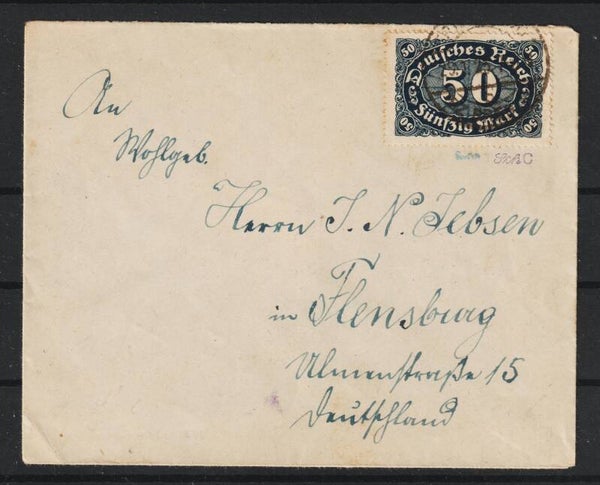 50 50
Deutsches Reich
50
Fünfzig Mark
50 50
An
Wohlgeb.
Herrn J. N. Jebsen
in Flensburg
Ulmenstraße 15
Deutschland